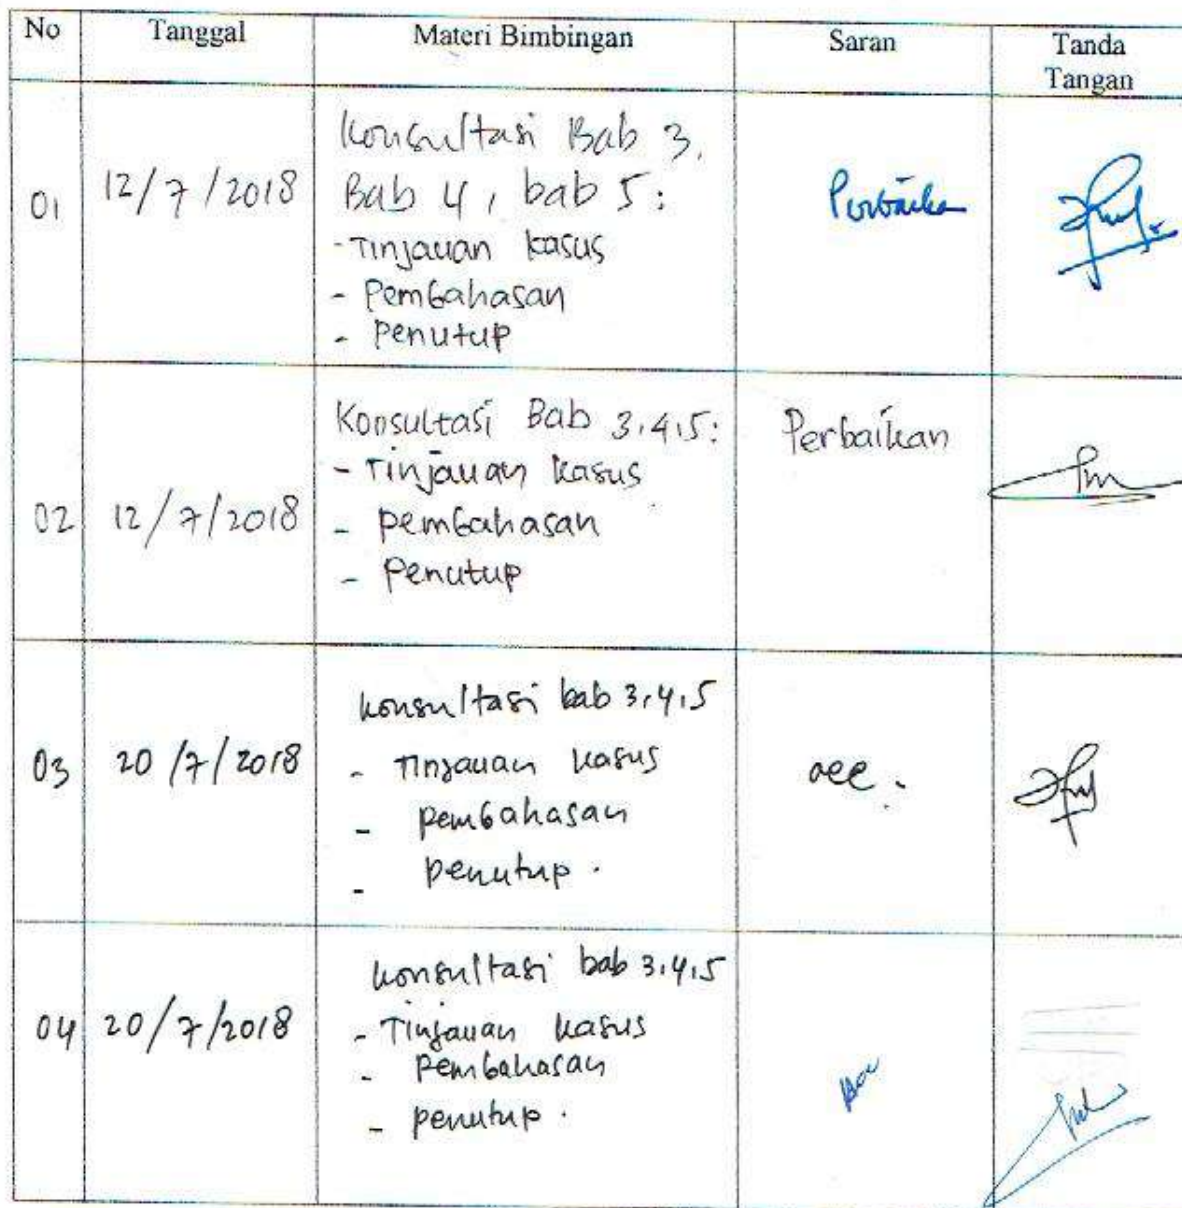 No Tanggal Materi Bimbingan Saran Tanda
Tangan
01 12/7/2018 Konsultasi Bab 3,
Bab 4, bab 5:
- Tinjauan kasus
- Pembahasan
- Penutup
Perbaikan
02 12/7/2018 Konsultasi Bab 3,4,5:
- Tinjauan kasus
- pembahasan
- Penutup
Perbaikan
03 20/7/2018 konsultasi bab 3,4,5
- Tinjauan kasus
- pembahasan
- penutup.
acc.
04 20/7/2018 konsultasi bab 3,4,5
- Tinjauan kasus
- Pembahasan
- penutup.